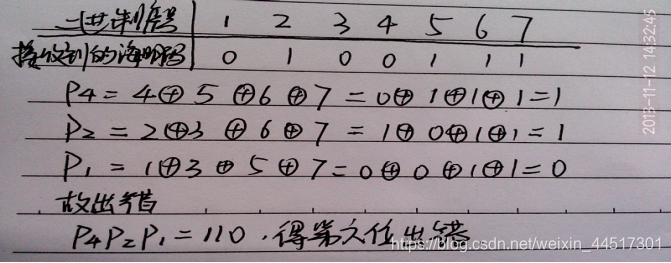 二进制序号 1 2 3 4 5 6 7
接收到的海明码 0 1 0 0 1 1 1
P4 = 4⊕5⊕6⊕7 = 0⊕1⊕1⊕1=1
P2 = 2⊕3⊕6⊕7 = 1⊕0⊕1⊕1=1
P1 = 1⊕3⊕5⊕7=0⊕0⊕1⊕1=0
故出错
P4P2P1=110.得第六位出错
2013-11-12 14:32:45
https://blog.csdn.net/weixin_44517301